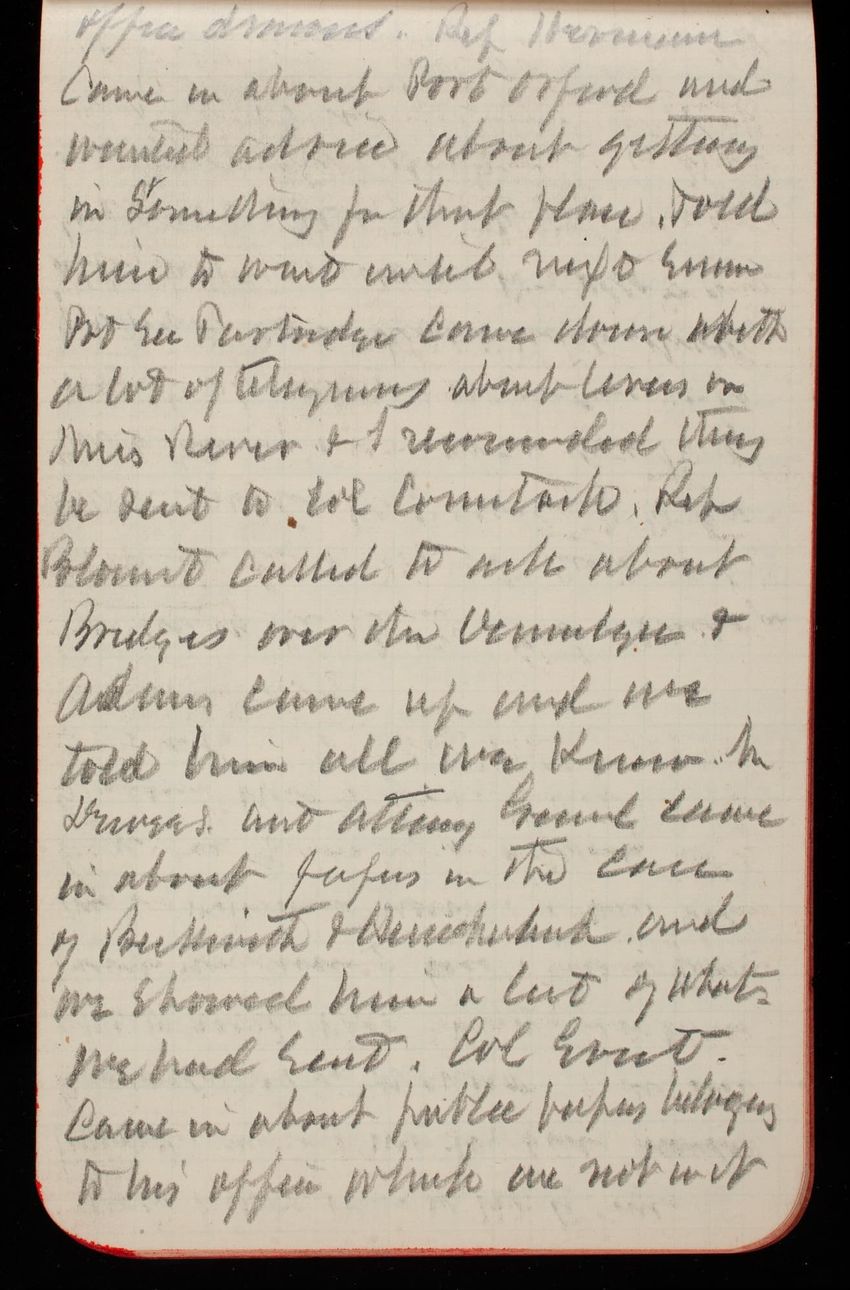 office drawers. Rep Hermann
Came in about Port Orford and
wanted advice about getting
in something for that place. Told
him to wait until next
Act Sec Partridge came down with
a lot of telegrams about levees on
Miss River & I recommended they
be sent to Col Comstock. Rep
Blount called to ask about
Bridges over the Ocmulgee &
Adams came up and we
told him all we knew. Mr
and Attorney came
in about papers in the case
of Beckwith & and
we showed him a list of what
we had sent. Col Ernst
Came in about public papers belonging
to his office which are not in it